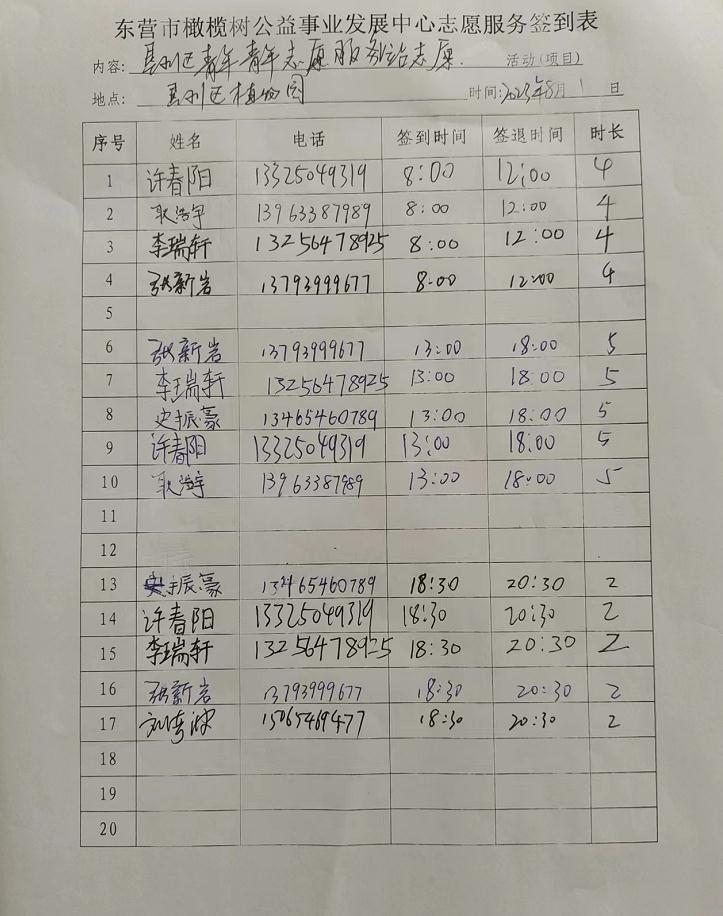 东营市橄榄树公益事业发展中心志愿服务签到表
内容: 垦利区青年青年志愿服务站志愿. 活动(项目)
地点: 垦利区植物园 时间:2023年8月1日
序号 姓名 电话 签到时间 签退时间 时长
1 许春阳 13325049319 8:00 12:00 4
2 耿浩宇 13963387989 8:00 12:00 4
3 李瑞轩 13256478925 8:00 12:00 4
4 张新岩 13793999677 8:00 12:00 4
5
6 张新岩 13793999677 13:00 18:00 5
7 李瑞轩 13256478925 13:00 18:00 5
8 史振豪 13465460789 13:00 18:00 5
9 许春阳 13325049319 13:00 18:00 5
10 耿浩宇 13963387989 13:00 18:00 5
11
12
13 史振豪 13465460789 18:30 20:30 2
14 许春阳 13325049319 18:30 20:30 2
15 李瑞轩 13256478925 18:30 20:30 2
16 张新岩 13793999677 18:30 20:30 2
17 15065469477 18:30 20:30 2
18
19
20